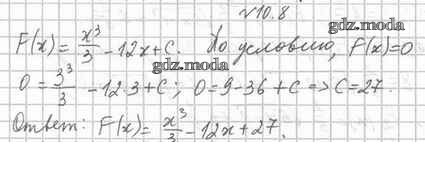 №10.8
gdz.moda
F(x) = x³/3 - 12x + C. По условию, F(x)=0
gdz.moda
0 = 3³/3 - 12·3 + C; 0 = 9 - 36 + C => C = 27.
Ответ: F(x) = x³/3 - 12x + 27.